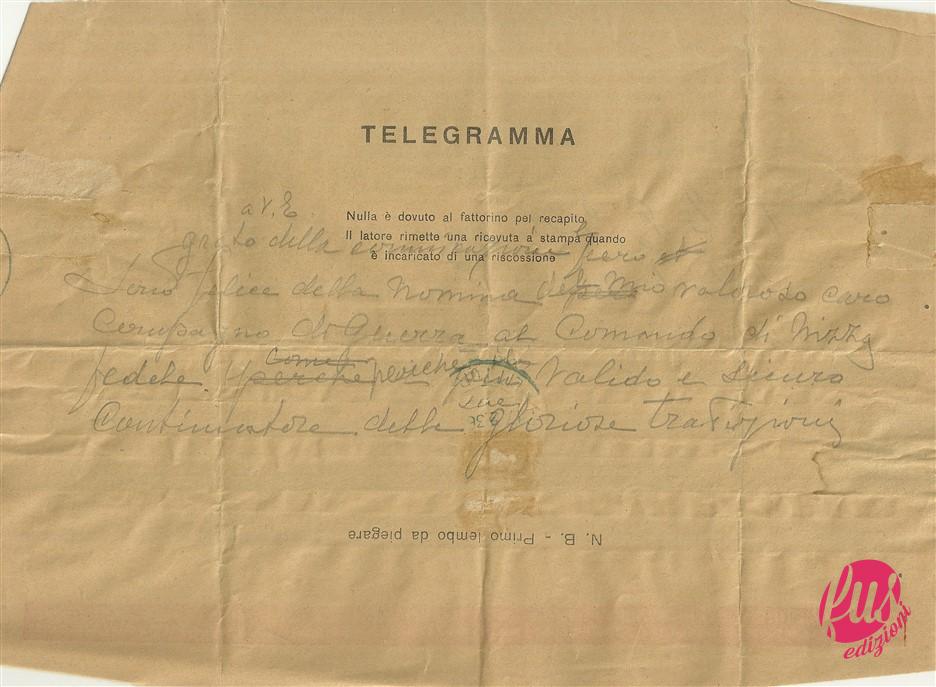 TELEGRAMMA
a V. E.
Nulla è dovuto al fattorino pel recapito
Il latore rimette una ricevuta a stampa quando
è incaricato di una riscossione
grato della comunicazione
Sono felice della nomina del mio valoroso caro
Compagno di Guerra al Comando di Nizza
fedele perche come poiche valido e sicuro
Continuatore delle gloriose tradizioni
N. B. - Primo lembo da piegare
fus
edizioni